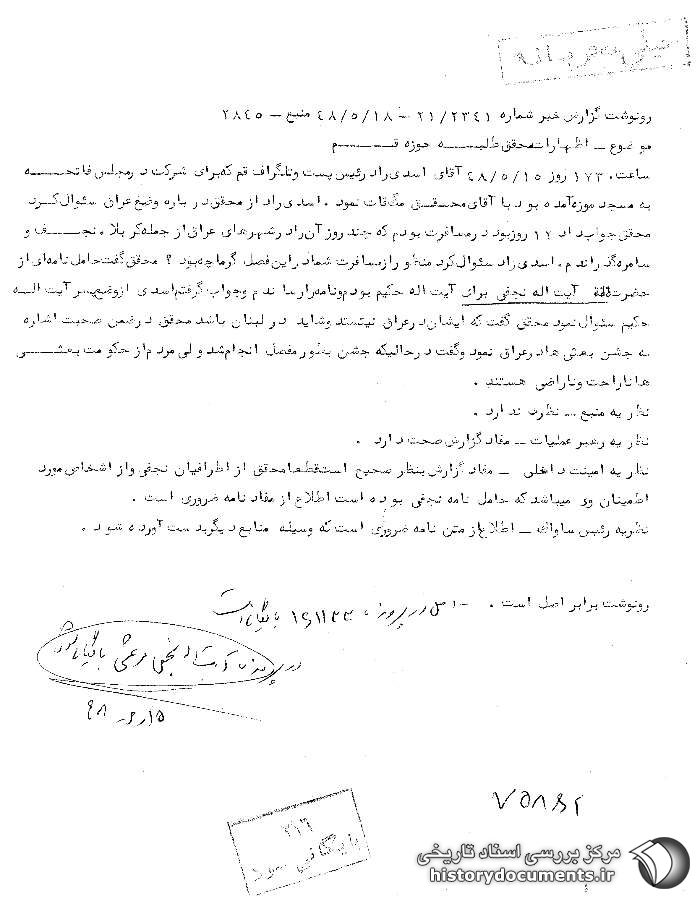 خیلی محرمانه
رونوشت گزارش خبر شماره ۲۱/۲۳۴۱ – ۴۸/۵/۱۸ منبع – ۲۸۴۵
موضوع – اظهارات محقق طلبه حوزه قم
ساعت ۱۷۳۰ روز ۴۸/۵/۱۵ آقای اسدی راد رئیس پست و تلگراف قم که برای شرکت در مجلس فاتحه
به مسجد موزه آمده بود با آقای محقق ملاقات نمود . اسدی راد از محقق در باره وضع عراق سئوال کرد
محقق جواب داد ۱۲ روز بود در مسافرت بودم که چند روز آن را در شهرهای عراق از جمله کربلا ، نجف و
سامره گذراندم . اسدی راد سئوال کرد منظور از مسافرت شما در این فصل گرما چه بود ؟ محقق گفت حامل نامه ای از
حضرت آیت اله نجفی برای آیت اله حکیم بودم و نامه را رساندم و جواب گرفتم اسدی از وضع پسر آیت اله
حکیم سئوال نمود محقق گفت که ایشان در عراق نیستند و شاید در لبنان باشد محقق در ضمن صحبت اشاره
به جشن بعثی ها در عراق نمود و گفت در حالیکه جشن بطور مفصل انجام شد ولی مردم از حکومت بعثی
ها ناراحت و ناراضی هستند .
نظریه منبع – نظری ندارد .
نظریه رهبر عملیات – مفاد گزارش صحت دارد .
نظریه امنیت داخلی – مفاد گزارش بنظر صحیح است قطعا محقق از اطرافیان نجفی و از اشخاص مورد
اطمینان وی میباشد که حامل نامه نجفی بوده است اطلاع از مفاد نامه ضروری است .
نظریه رئیس ساواک – اطلاع از متن نامه ضروری است که وسیله منابع دیگر بدست آورده شود .
رونوشت برابر اصل است . – اصل در پرونده ۱۹۱۱۳۳ بایگانی است
در پرونده آیت اله نجفی مرعشی بایگانی شود
۴۸
۷۵۸۸۴
۳۱۶
بایگانی شود
مرکز بررسی اسناد تاریخی
historydocuments.ir